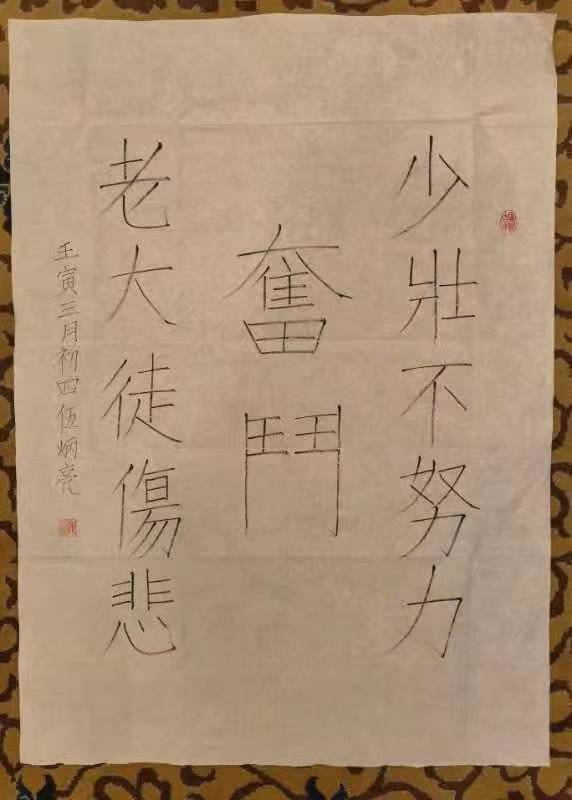 少壯不努力
奮鬥
老大徒傷悲
壬寅三月初四伍炳亮